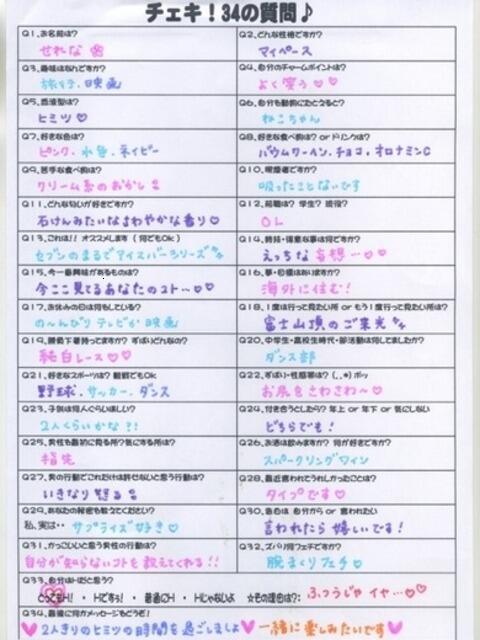 チェキ！34の質問♪
Q1、お名前は?
せれな
Q2、どんな性格ですか?
マイペース
Q3、趣味はなんですか?
旅行、映画
Q4、自分のチャームポイントは?
よく笑う♡♡
Q5、血液型は?
ヒミツ♡
Q6、自分を動物にたとえると?
ねこちゃん
Q7、好きな色は?
ピンク、水色、ネイビー
Q8、好きな食べ物は? or ドリンクは?
バウムクーヘン、チョコ、オロナミンC
Q9、苦手な食べ物は?
クリーム系のおかし
Q10、喫煙者ですか?
吸ったことないです
Q11、どんな匂いが好きですか?
石けんみたいなさわやかな香り♡
Q12、前職は? 学生? 現役?
OL
Q13、これは!! オススメします (何でもOk)
セブンのまるでアイスバーシリーズ
Q14、特技・得意な事は何ですか?
えっちな妄想…♡
Q15、今一番興味があるものは?
今ここ見てるあなたのコト…♡
Q16、夢・目標はありますか?
海外に住む!
Q17、お休みの日は何をしている?
の〜んびりテレビか映画
Q18、1度は行って見たい所 or もう1度行って見たい所は?
富士山頂のご来光
Q19、勝負下着持ってますか? ずばりどんなの?
純白レース♡♡
Q20、中学生・高校生時代・部活動は何してましたか?
ダンス部
Q21、好きなスポーツは? 観戦でもOK
野球、サッカー、ダンス
Q22、ずばり・性感帯は? (,,*) ポッ
お尻をさわさわ〜♡
Q23、子供は何人ぐらいほしい?
2人くらいかな?!
Q24、付き合うとしたら? 年上 or 年下 or 気にしない
どちらでも!
Q25、男性を最初に見る所?気にする所は?
指先
Q26、お酒は飲みますか? 何が好きですか?
スパークリングワイン
Q27、男の行動でこれだけは許せないと思う行動は?
いきなり怒る
Q28、最近言われてうれしかったことは?
タイプです♡
Q29、あなたの秘密を教えてください?
私、実は・・サプライズ好き♡
Q30、告白は 自分から or 言われたい
言われたら嬉しいです!
Q31、かっこいいと思う男性の行動は?
自分が知らないコトを教えてくれる!!
Q32、ズバリ何フェチですか?
腕まくりフェチ♡
Q33、自分はHだと思う?
とってもH! ・ Hですっ! ・ 普通にH ・ Hじゃないよ ☆その理由は?: ふつうじゃイヤ…♡
Q34、最後に何かメッセージをどうぞ!
♥2人きりのヒミツの時間を過ごしましょ♥一緒に楽しみたいです♥